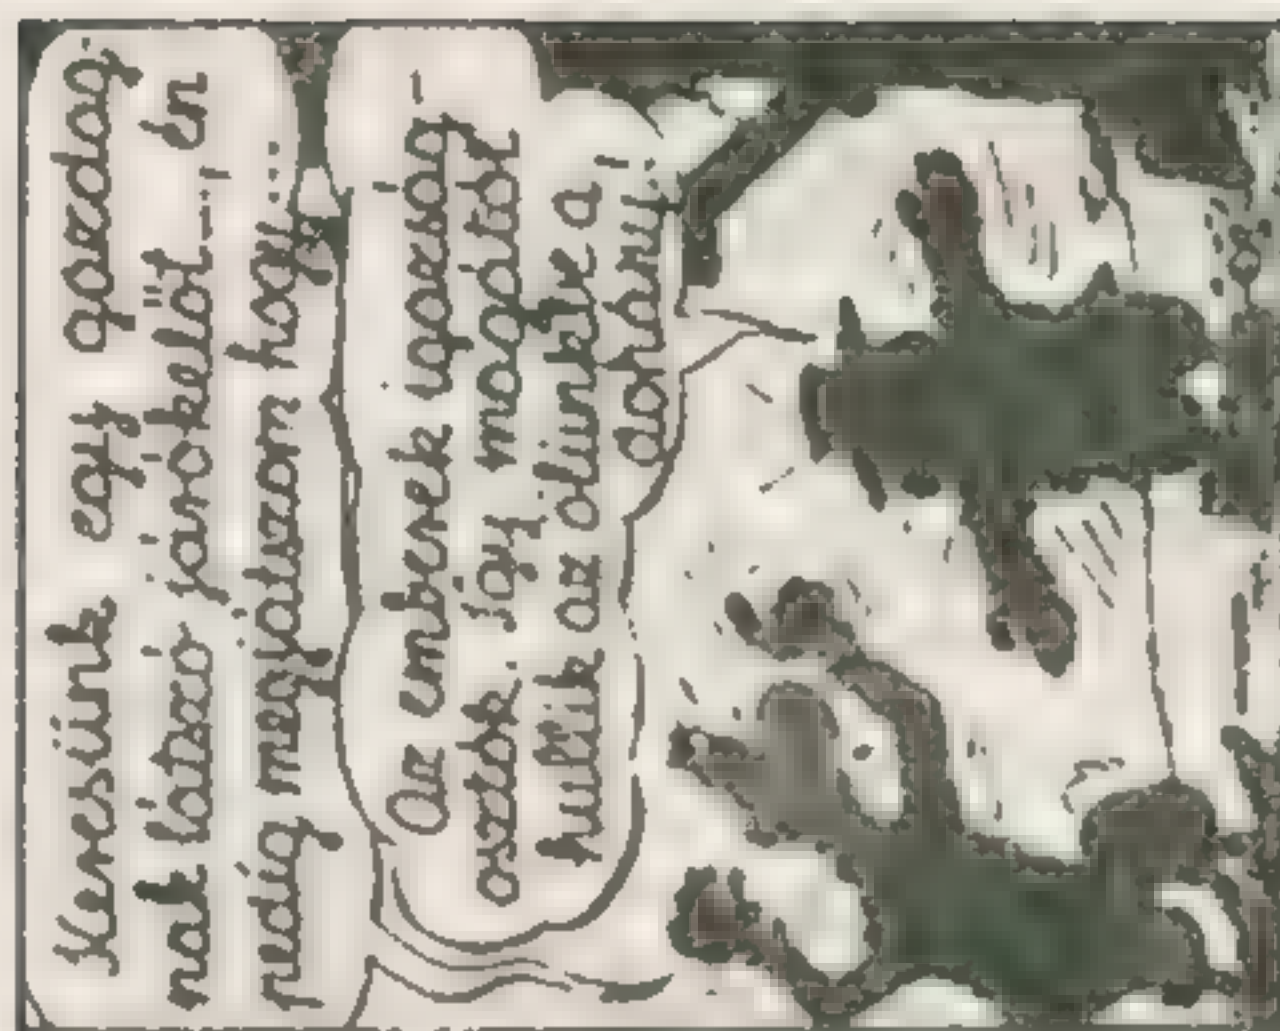 Keresünk egy gazdag-
nak látszó járókelőt --, Én
pedig megjátszom hogy...
Az emberek igazság-
osztók. Így magától
hullik az ölünkbe a
dohány!